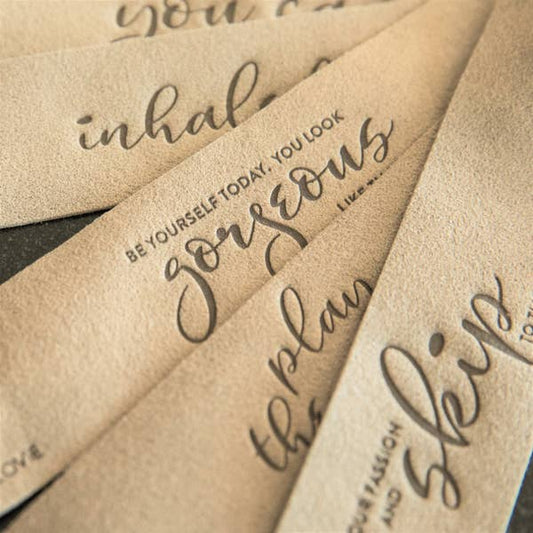 you ca
inhale
BE YOURSELF TODAY. YOU LOOK
gorgeous
LIKE
play
the
OUR PASSION
AND
skip